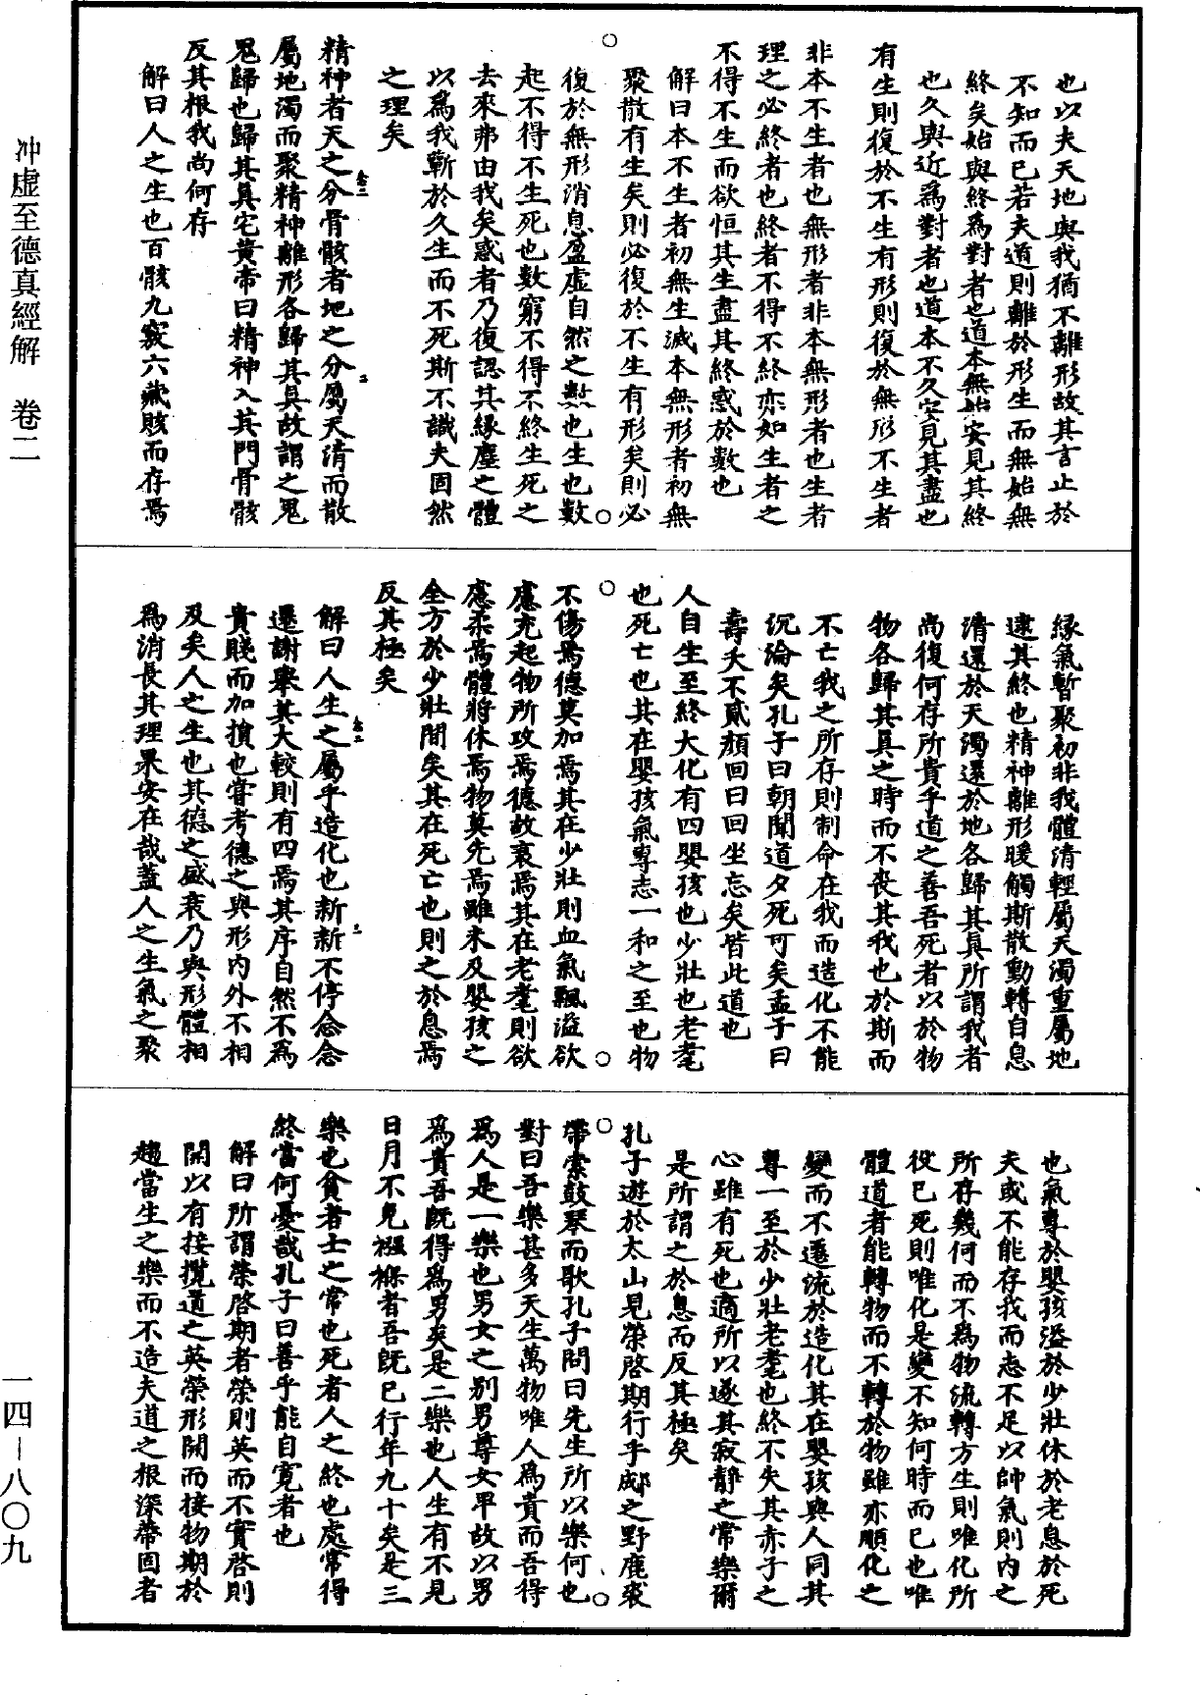 冲虚至德真經解　卷二
也以夫天地與我猶不離形故其言止於
不知而已若夫道則離於形生而無始無
終矣始與終為對者也道本無始安見其終
也久與近為對者也道本不久安見其盡也
有生則復於不生有形則復於無形不生者
非本不生者也無形者非本無形者也生者
理之必終者也終者不得不終亦如生者之
不得不生而欲恒其生盡其終惑於數也
解曰本不生者初無生滅本無形者初無
聚散有生矣則必復於不生有形矣則必
復於無形消息盈虛自然之數也生也數
起不得不生死也數窮不得不終生死之
去來弗由我矣惑者乃復認其緣塵之體
以為我蘄於久生而不死斯不識夫固然
之理矣
精神者天之分骨骸者地之分屬天清而散
屬地濁而聚精神離形各歸其真故謂之鬼
鬼歸也歸其真宅黃帝曰精神入其門骨骸
反其根我尚何存
解曰人之生也百骸九竅六藏賅而存焉
緣氣暫聚初非我體清輕屬天濁重屬地
逮其終也精神離形暖觸斯散動轉自息
清還於天濁還於地各歸其真所謂我者
尚復何存所貴乎道之善吾死者以於物
物各歸其真之時而不喪其我也於斯而
不亡我之所存則制命在我而造化不能
沉淪矣孔子曰朝聞道夕死可矣孟子曰
壽夭不貳顏回曰回坐忘矣皆此道也
人自生至終大化有四嬰孩也少壯也老耄
也死亡也其在嬰孩氣專志一和之至也物
不傷焉德莫加焉其在少壯則血氣飄溢欲
慮充起物所攻焉德故衰焉其在老耄則欲
慮柔焉體將休焉物莫先焉雖未及嬰孩之
全方於少壯間矣其在死亡也則之於息焉
反其極矣
解曰人生之屬乎造化也新新不停念念
還謝舉其大較則有四焉其序自然不為
貴賤而加損也嘗考德之與形內外不相
及矣人之生也其德之盛衰乃與形體相
為消長其理果安在哉蓋人之生氣之聚
也氣專於嬰孩溢於少壯休於老息於死
夫或不能存我而志不足以帥氣則內之
所存幾何而不為物流轉方生則唯化所
役已死則唯化是變不知何時而已也唯
體道者能轉物而不轉於物雖亦順化之
變而不遷流於造化其在嬰孩與人同其
專一至於少壯老耄也終不失其赤子之
心雖有死也適所以遂其寂靜之常樂爾
是所謂之於息而反其極矣
孔子遊於太山見榮啓期行乎郕之野鹿裘
帶索鼓琴而歌孔子問曰先生所以樂何也
對曰吾樂甚多天生萬物唯人為貴而吾得
為人是一樂也男女之別男尊女卑故以男
為貴吾既得為男矣是二樂也人生有不見
日月不免襁褓者吾既已行年九十矣是三
樂也貧者士之常也死者人之終也處常得
終當何憂哉孔子曰善乎能自寬者也
解曰所謂榮啓期者榮則英而不實啓則
開以有接攬道之英榮形開而接物期於
趨當生之樂而不造夫道之根深蔕固者
一四—八〇九